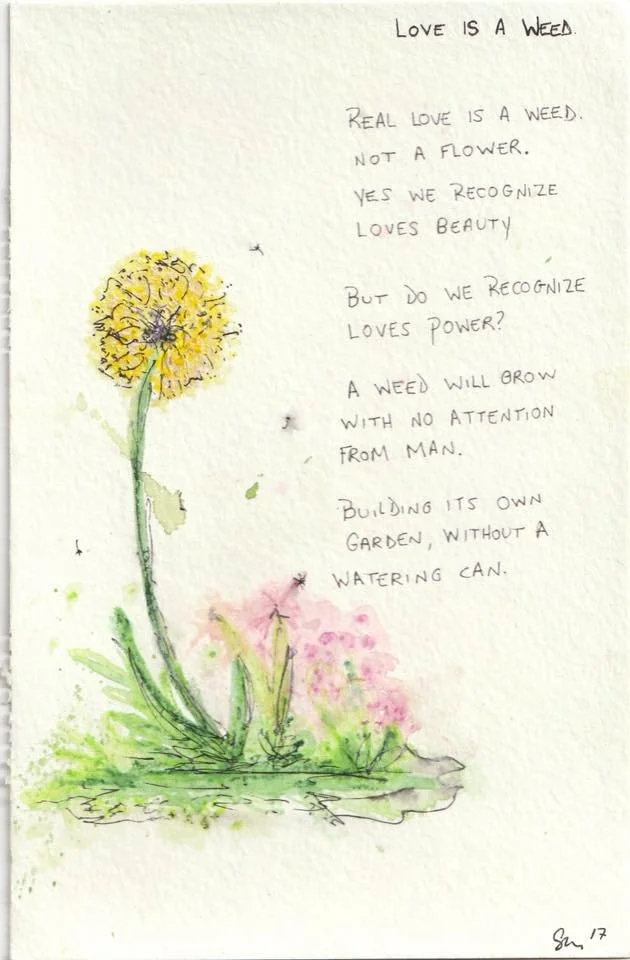 LOVE IS A WEED.
REAL LOVE IS A WEED.
NOT A FLOWER.
YES WE RECOGNIZE
LOVES BEAUTY
BUT DO WE RECOGNIZE
LOVES POWER?
A WEED WILL GROW
WITH NO ATTENTION
FROM MAN.
BUILDING ITS OWN
GARDEN, WITHOUT A
WATERING CAN.
17